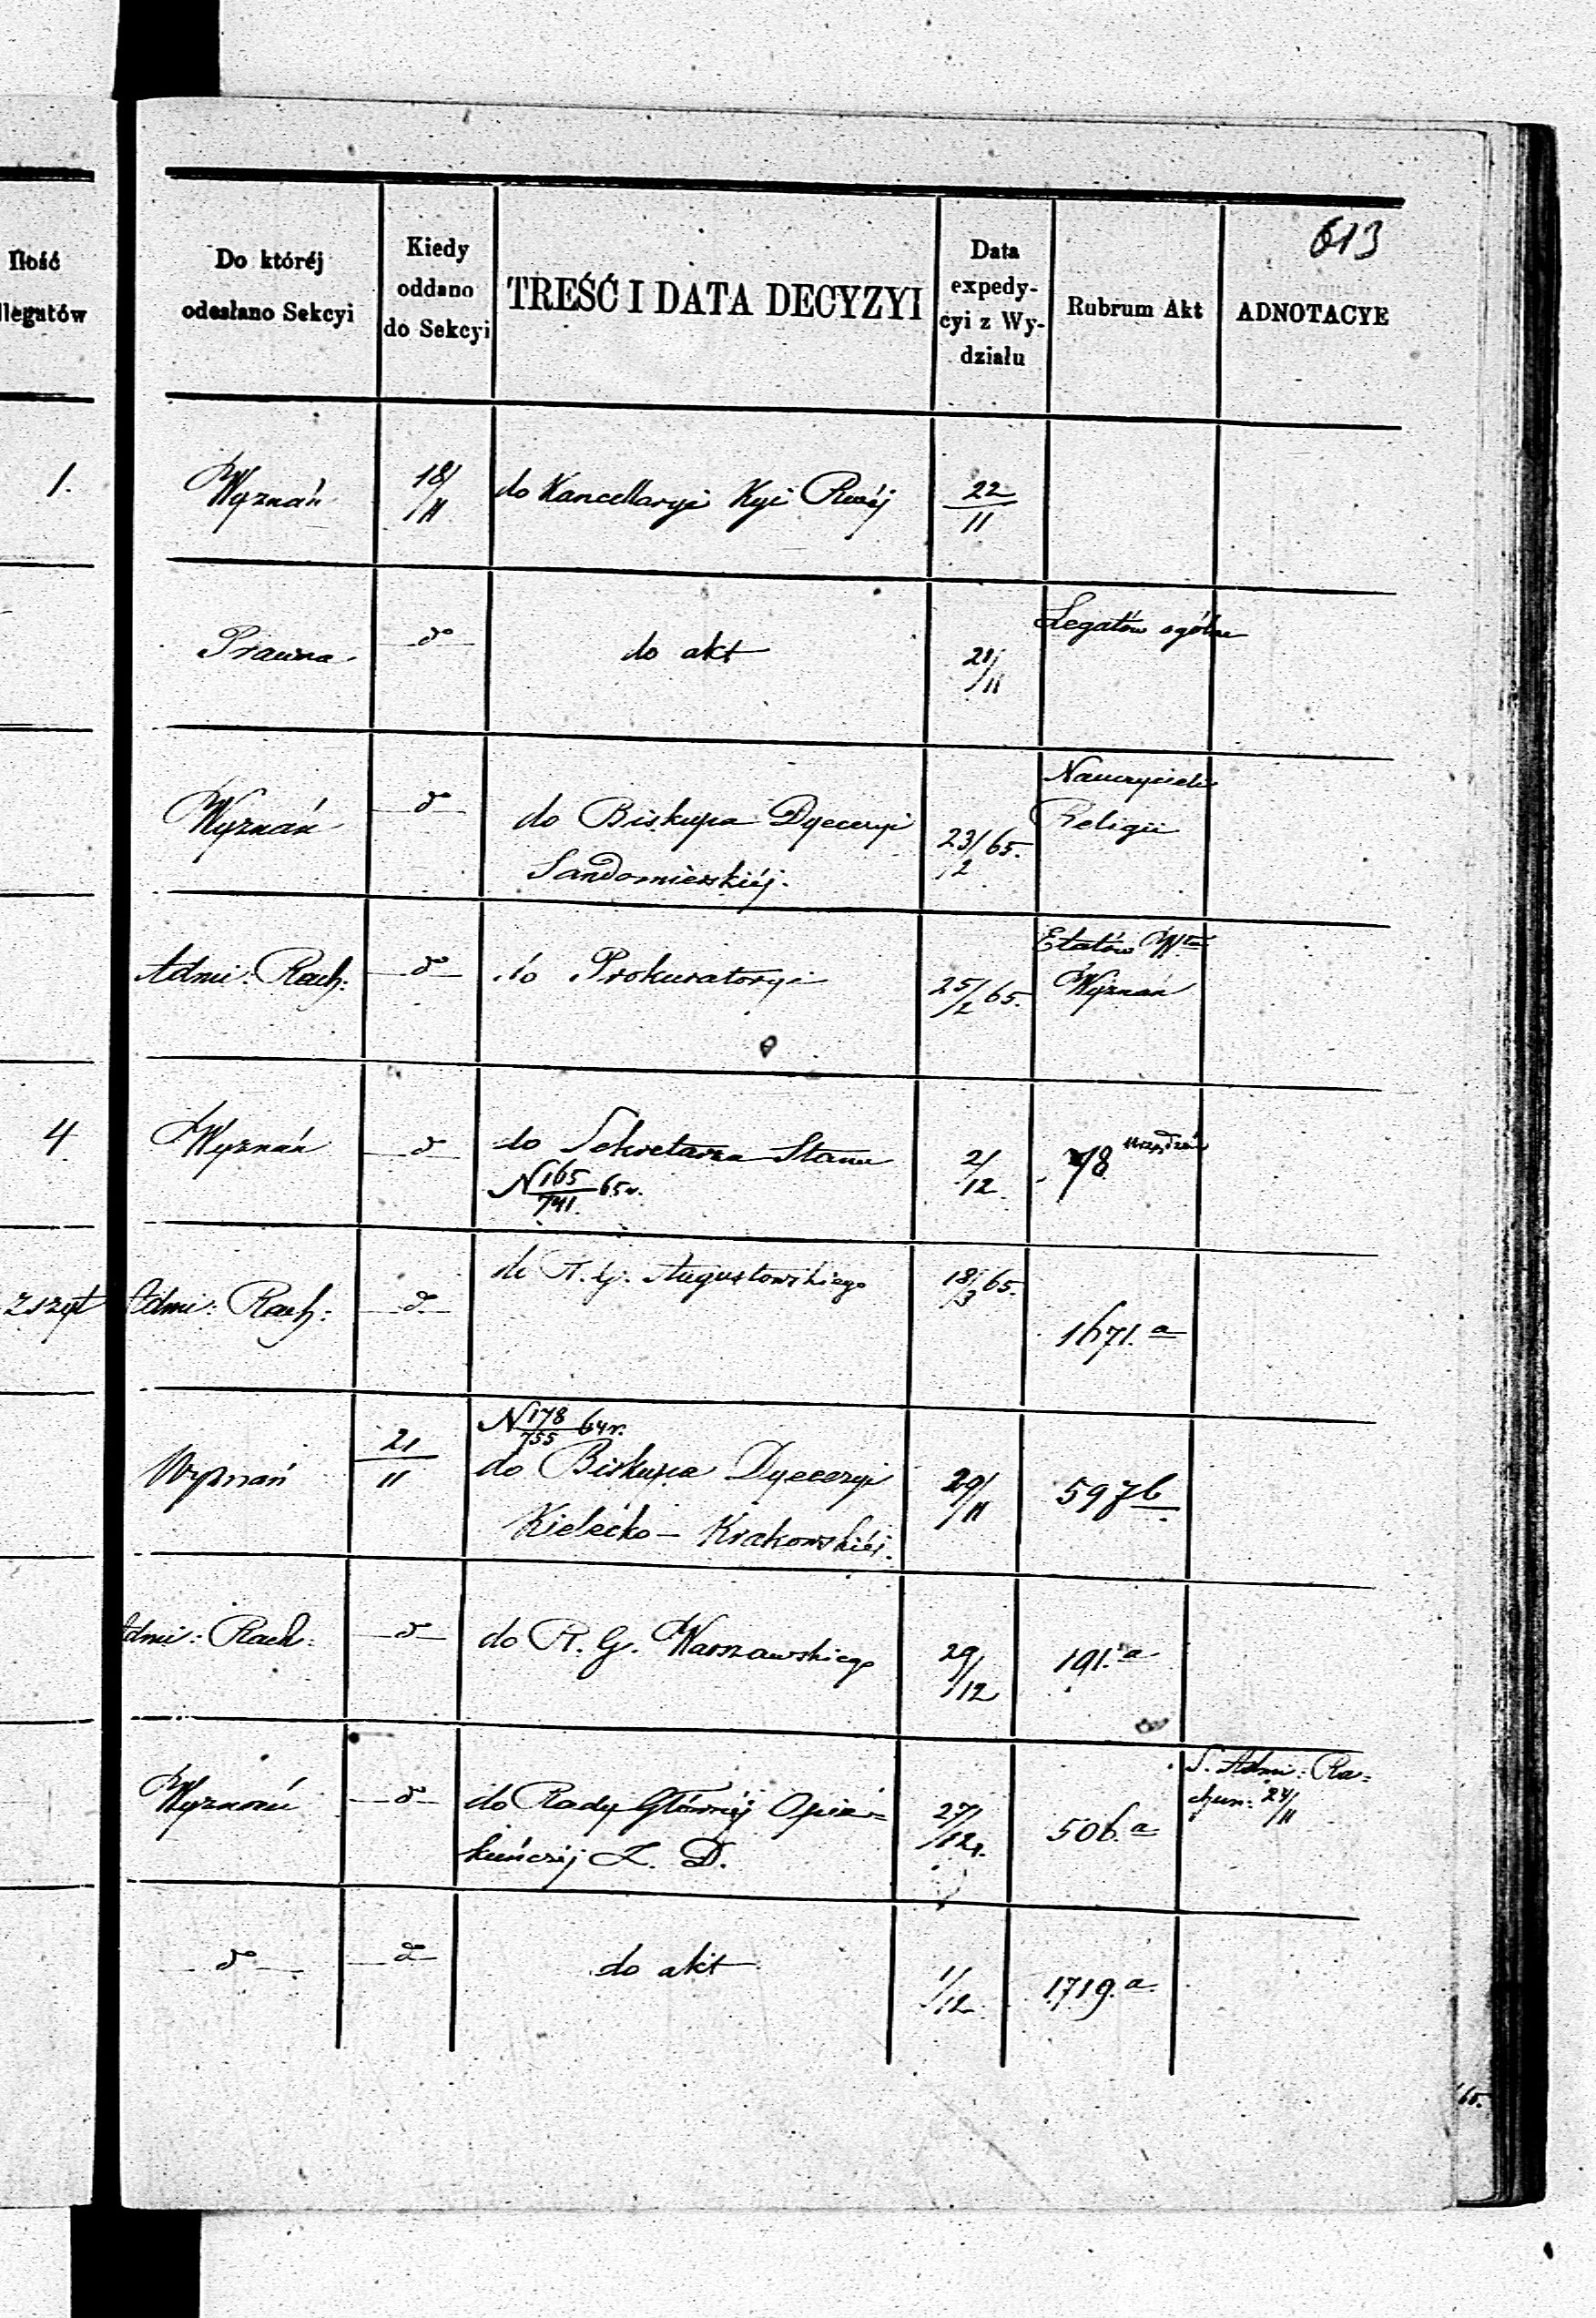 613
Ilość
llegatów
Do któréj
odesłano Sekcyi
Kiedy
oddano
do Sekcyi
TREŚĆ I DATA DECYZYI
Data
expedy-
cyi z Wy-
działu
Rubrum Akt
ADNOTACYE
1.
Wyznań
18/II
do Kancellaryi Kyi Rwéj
22/II
Prawna
do
do akt
21/II
Legatów ogólne
Wyznań
do
do Biskupa Dyecezyi
Sandomierskiéj.
23/2 65.
Nauczycieli
Religii
Admi: Rach:
do
do Prokuratoryi
25/2 65.
Etatów
Wyznań
4
Wyznań
do
do Sekretarza Stanu
N 165/741. 65 r.
2/12
78
zszyt
Admi: Rach:
do
do R. G. Augustowskiego
18/3 65.
1671. a
Wyznań
21/II
N 178/755 64 r.
do Biskupa Dyecezyi
Kielecko - Krakowskiéj.
29/II
597 b
Admi: Rach:
do
do R. G. Warszawskiego
29/12
191. a
Wyznań
do
do Rady Głównéj Opie=
kuńczéj Z. D.
27/12
506. a
S. Admi: Ra=
chun: 24/II
do
do
do akt
1/12
1719. a
65.